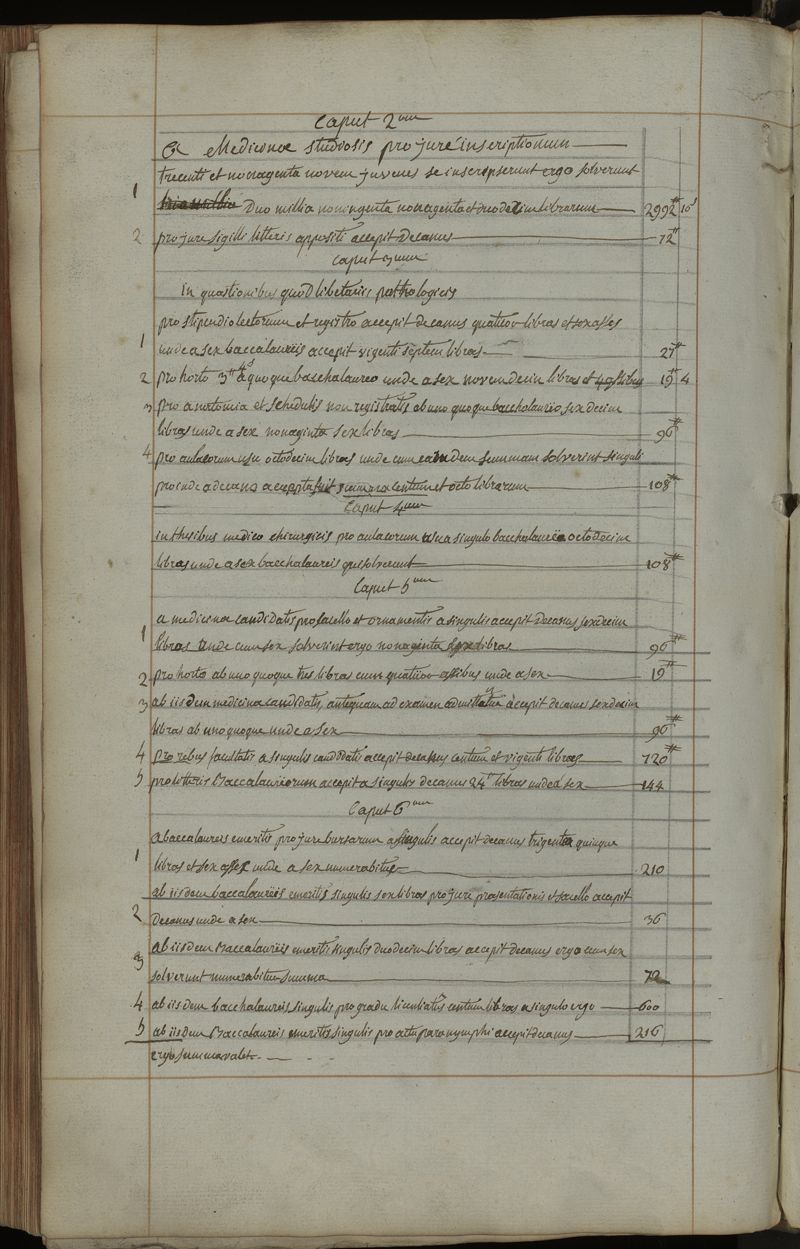 Caput 2um
a Medicinæ studiosis pro jure inscriptionum
trecenti et nonaginta novem juvenes se inscripserunt ergo solverunt
1 Duo millia noningenta nonagenta et duodecim librarum 2992# 10s
2 pro jure sigilli litteris appositi accepit Decanus 72#
Caput 3um
In quæstionibus quodlibetariis pathologicis
pro stipendio lectorum et registro accepit decanus quatuor libras et sex asses
1 unde a sex baccalaureis accepit viginti septem libras 27#
2 pro horto 3# 4s a quoque bacchalaureo unde a sex novemdecim libras et 4 assibus 19# 4
3 pro anatomia et schedulis non registratis ab uno quoque bacchalaureo sexdecim
libras unde a sex nonaginta sex libras 96#
4 pro aulæorum usu octodecim libras unde cum eamdem summam solverint singuli
proinde a decano accepta fuit summa centum et octo librarum 108#
Caput 4um
in thesibus medico chirurgicis pro aulæorum usu a singulo bacchalaureo octodecim
libras unde a sex bacchalaureis qui solverunt 108#
Caput 5um
a medicinæ candidatis pro sacello et ornamentis a singulis accepit Decanus sexdecim
1 libras unde cum sex solverint ergo nonaginta sex libras 96#
2 pro horto ab uno quoque tres libras cum quatuor assibus unde a sex 19#
3 ab iisdem medicinæ candidatis, antequam ad examen admittatur accepit decanus sexdecim
libras ab uno quoque unde a sex 96#
4 pro rebus facultatis a singulis candidatis accepit decanus centum et viginti libras 720#
5 pro litteris Baccalaureorum accepit a singulis decanus 24# libras unde a sex 144
Caput 6um
a baccalaureis emeritis pro jure bursarum a singulis accepit decanus trigenta quinque
1 libras et sex asses unde a sex numerabitur 210
ab iisdem baccalaureis emeritis singulis sex libras pro jure præsentationis et sacello accepit
2 Decanus unde a sex 36
ab iisdem Baccalaureis emeritis singulis duodecim libras accepit decanus ergo cum sex
3 solverunt numerabitur summa 72
4 ab iisdem bacchalaureis singulis pro gradu licentiatus centum libras a singulo ergo 600
5 ab iisdem Baccalaureis emeritis singulis pro actu paranymphi accepit decanus 216
ergo summa valet